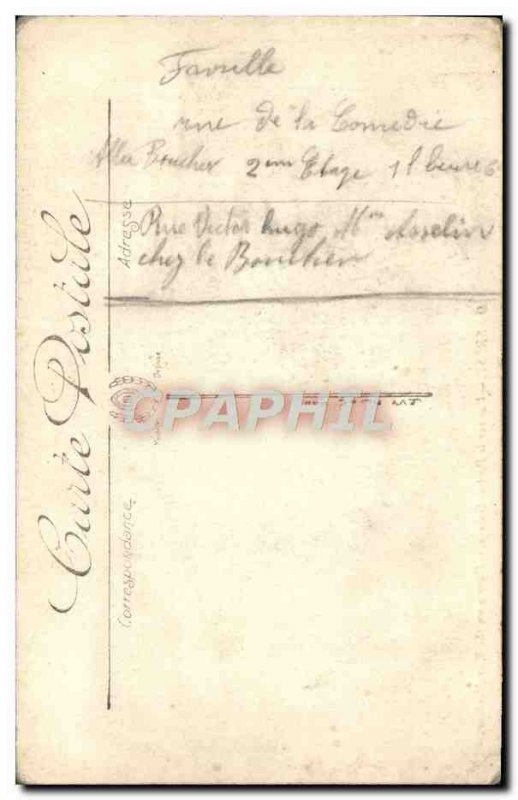 Favrille
rue de la Comedie
Boucher 2em Etage 11 heures
Rue Victor Hugo Mme Asselin
chez le Boucher
Carte Postale
Adresse
Correspondance
CPAPHIL